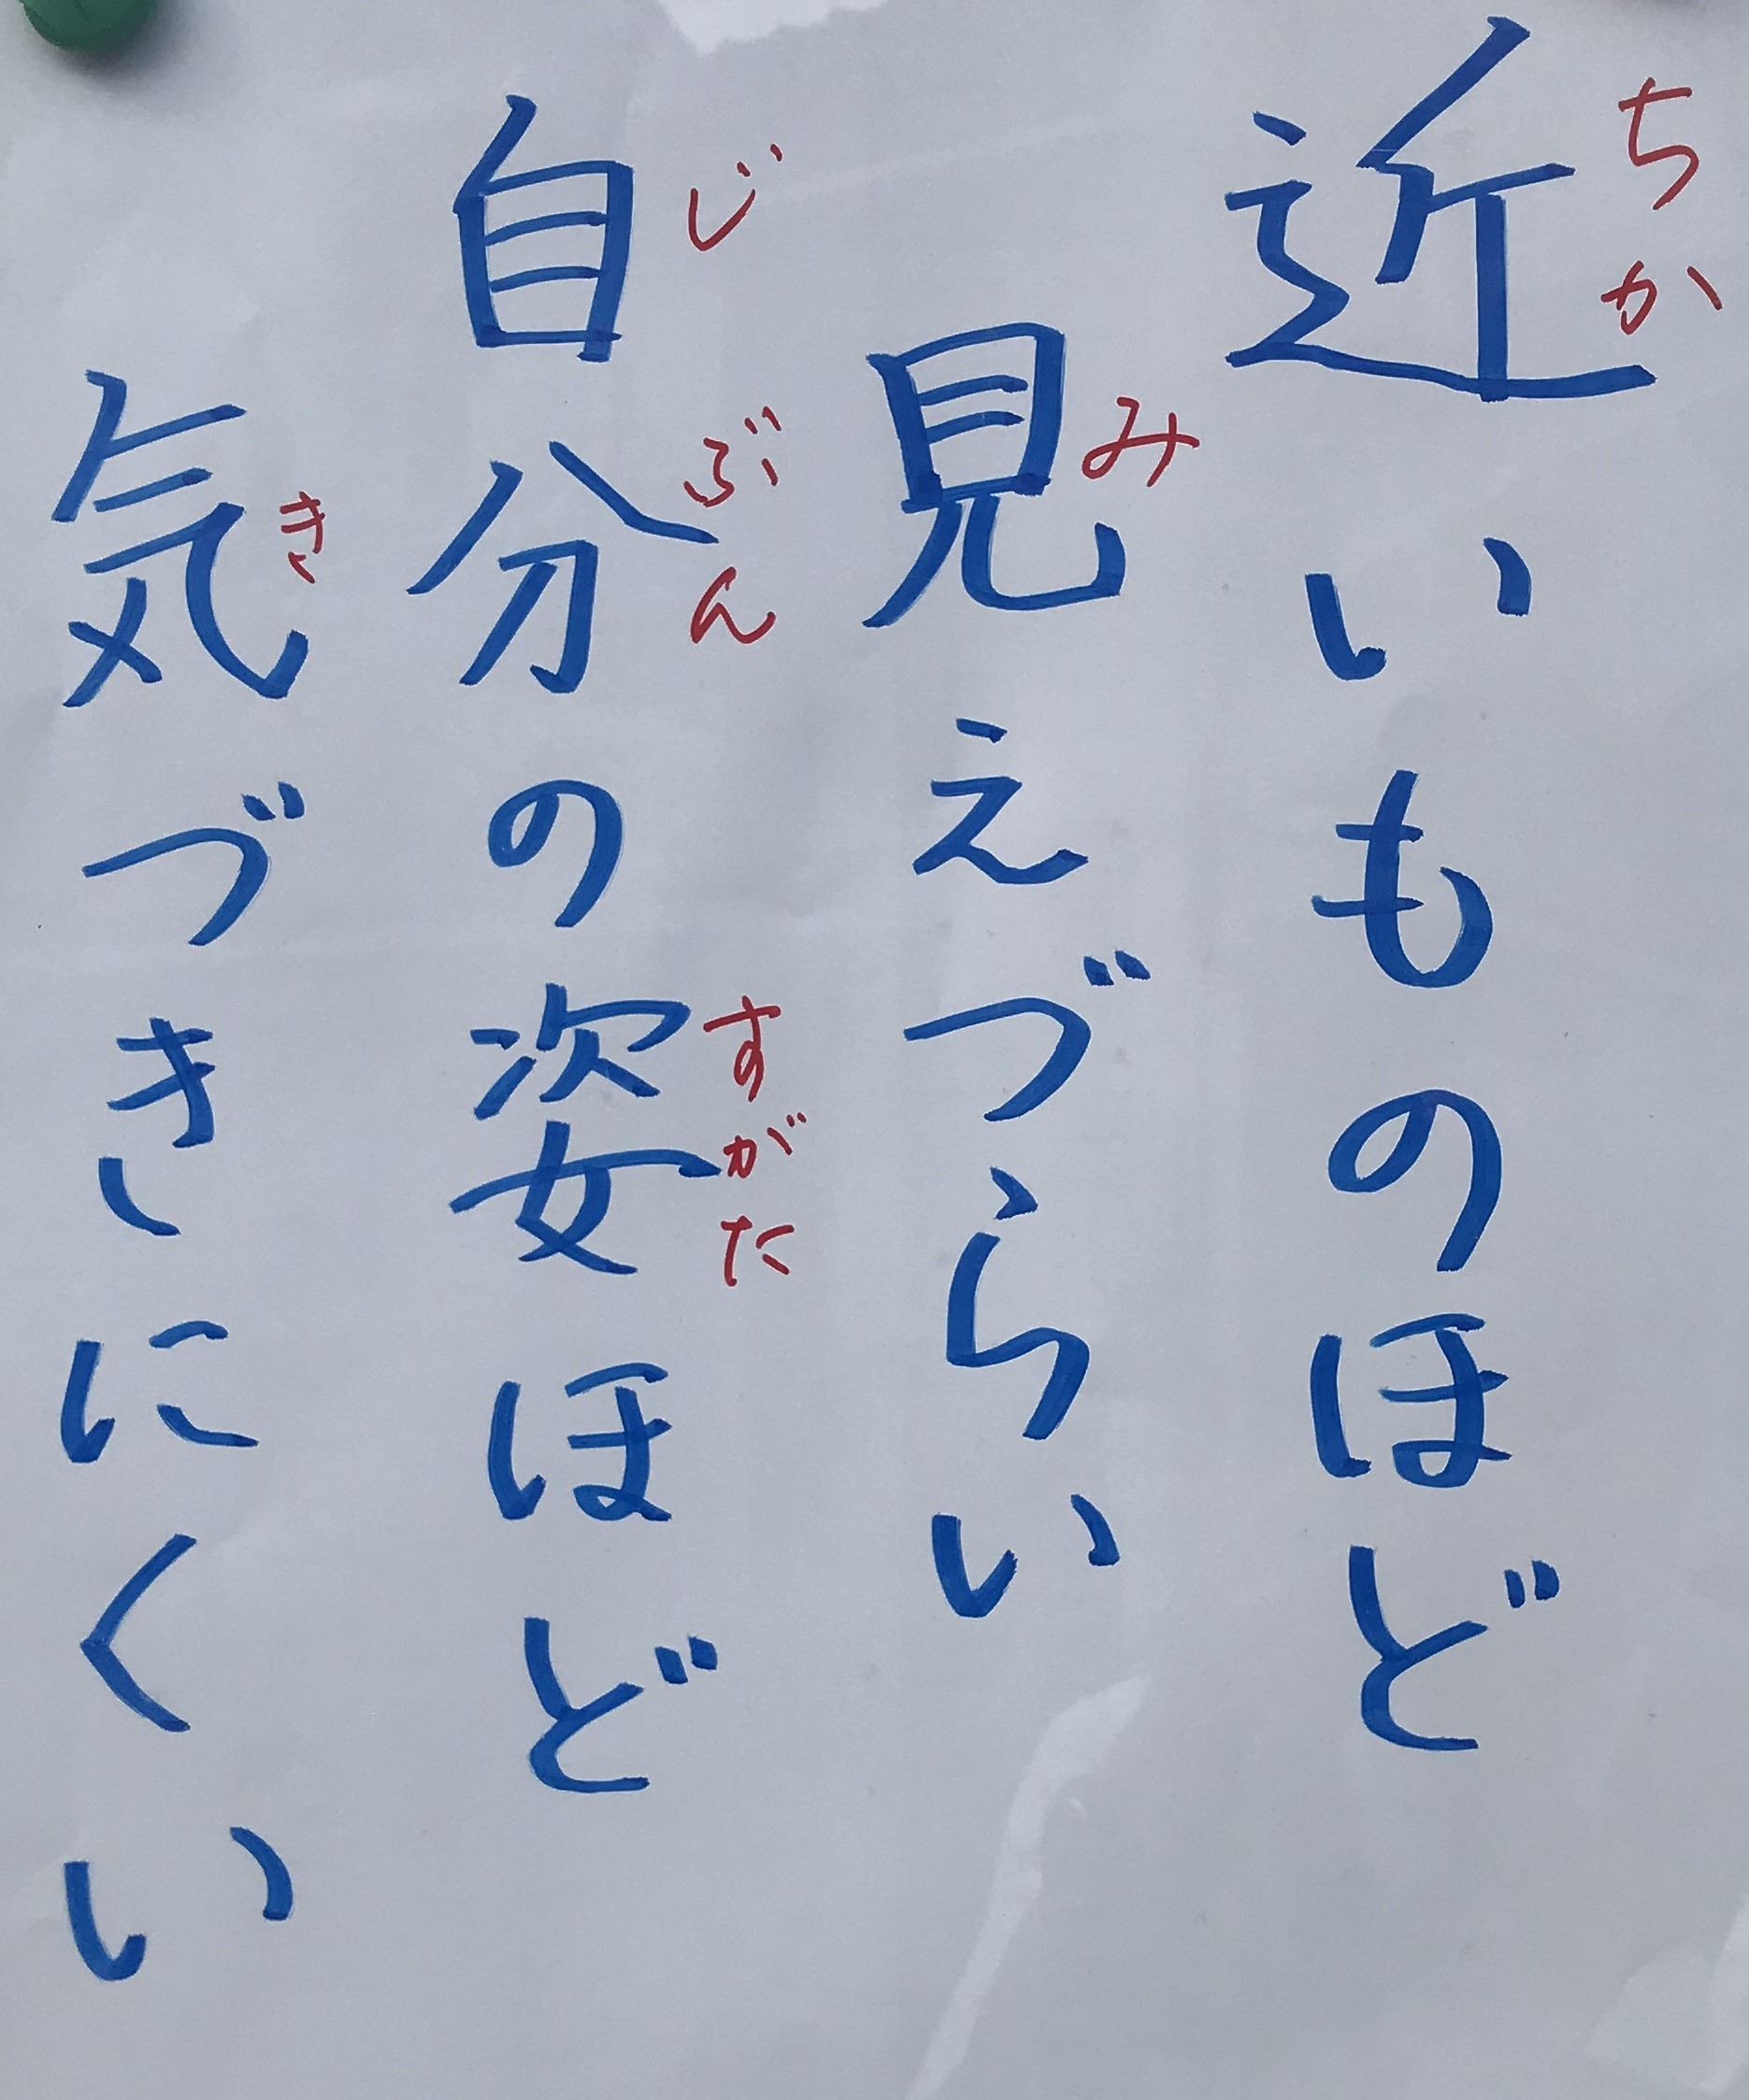 近いものほど
ちか
見えづらい
み
自分の姿ほど
じ ぶん すがた
気づきにくい
き